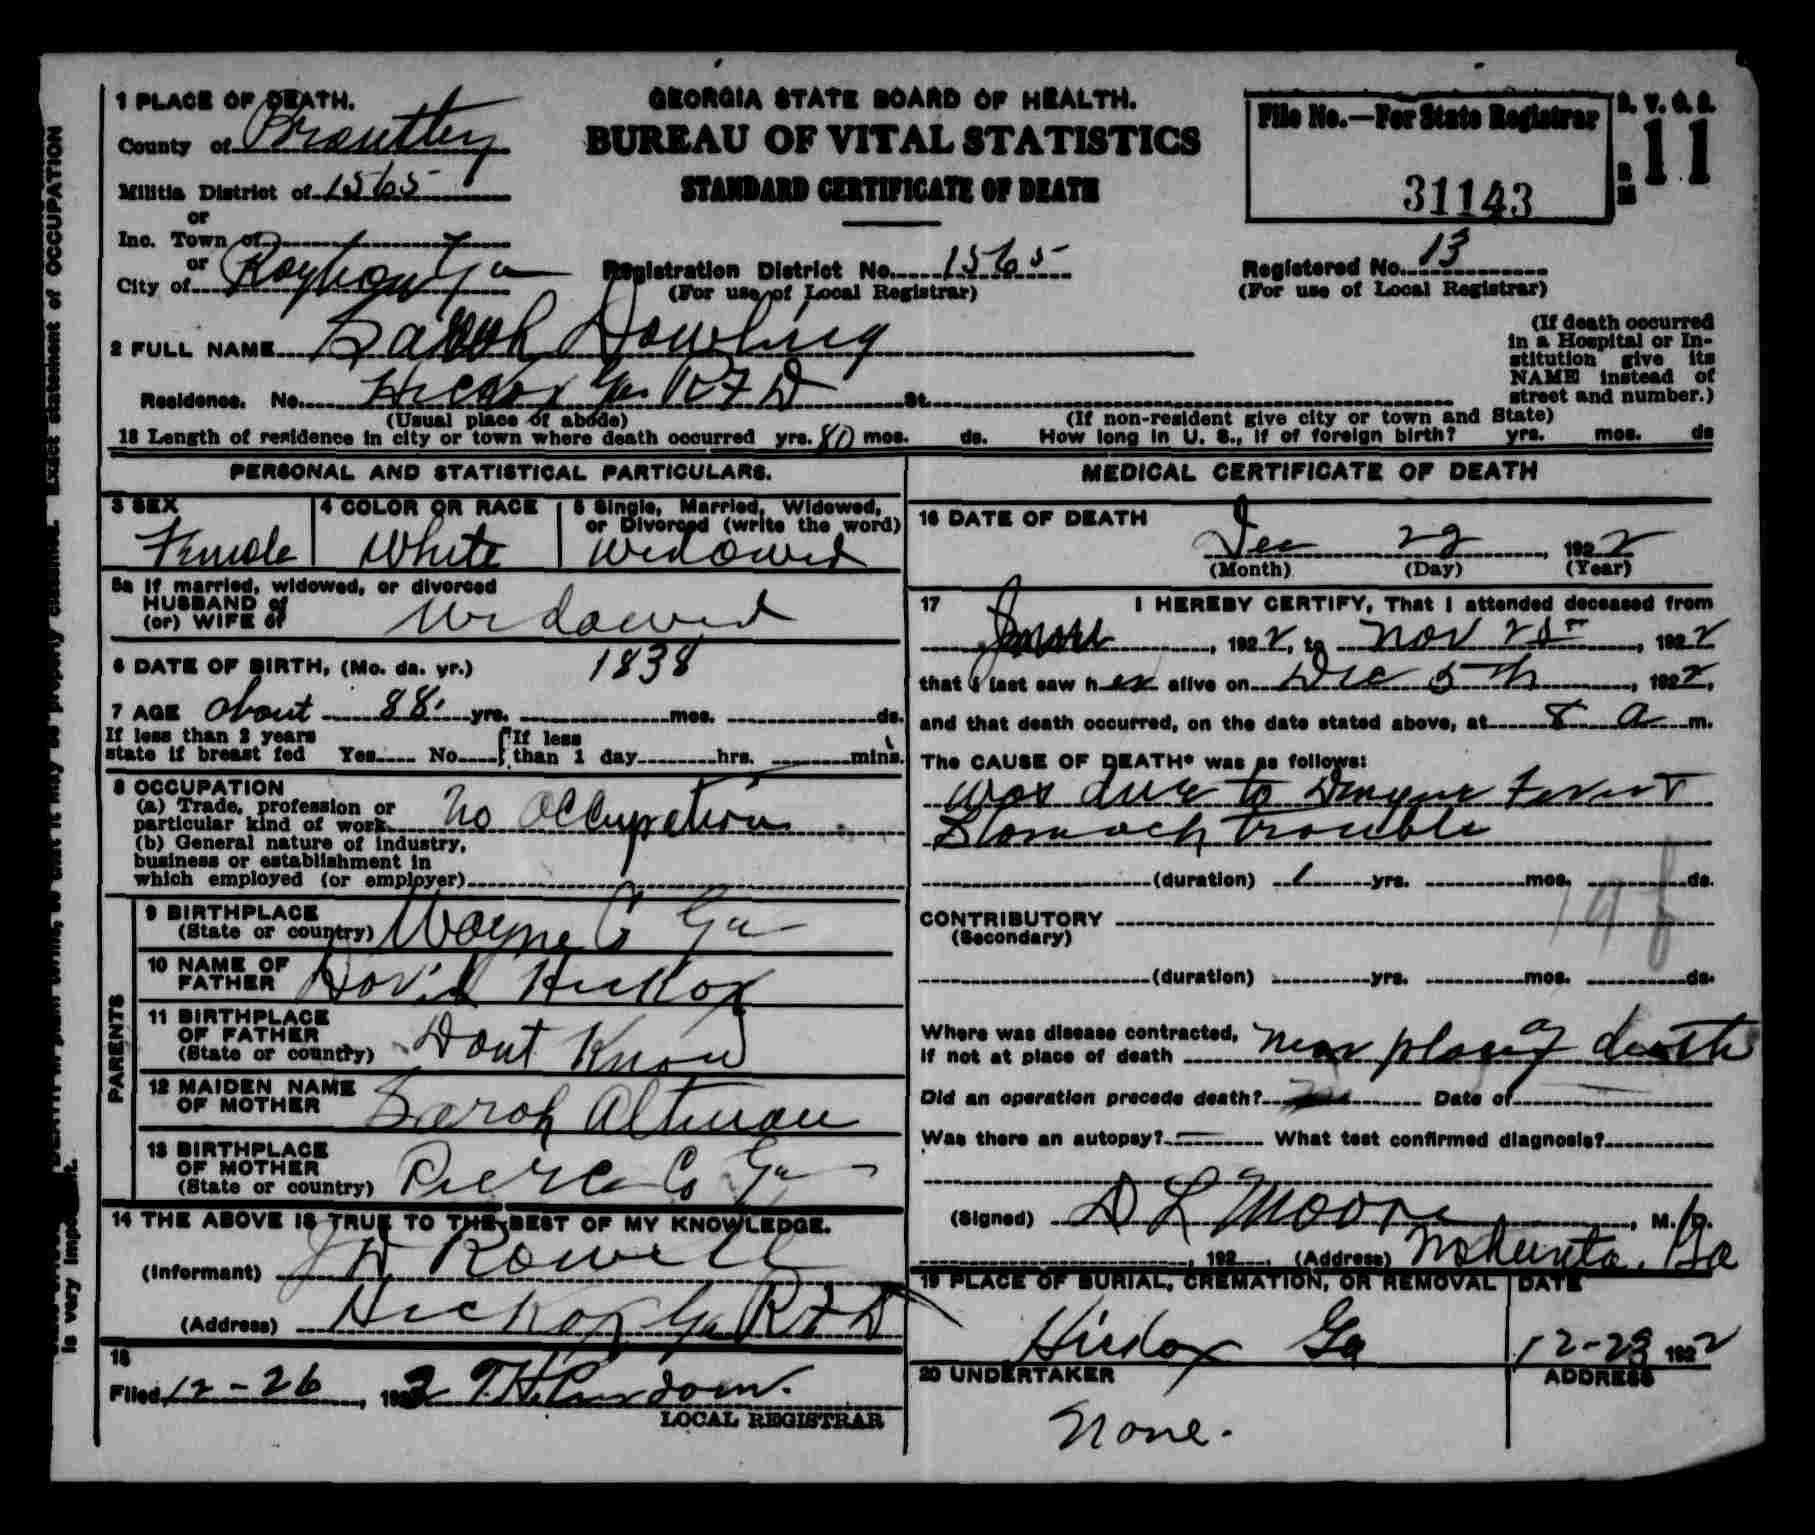 1 PLACE OF DEATH.
County of Brantley
Militia District of 1565
or
Inc. Town of
or
City of Raybon Ga
GEORGIA STATE BOARD OF HEALTH.
BUREAU OF VITAL STATISTICS
STANDARD CERTIFICATE OF DEATH
File No.—For State Registrar
31143
11
Registration District No. 1565
(For use of Local Registrar)
Registered No. 13
(For use of Local Registrar)
2 FULL NAME Sarah Dowling
(If death occurred
in a Hospital or In-
stitution give its
NAME instead of
street and number.)
Residence. No. Hickox Ga RFD St.
(Usual place of abode)
(If non-resident give city or town and State)
18 Length of residence in city or town where death occurred yrs. 80 mos. ds. How long in U. S., if of foreign birth? yrs. mos. ds
PERSONAL AND STATISTICAL PARTICULARS.
3 SEX
Female
4 COLOR OR RACE
White
5 Single, Married, Widowed,
or Divorced (write the word)
Widowed
5a If married, widowed, or divorced
HUSBAND of
(or) WIFE of
Widowed
6 DATE OF BIRTH, (Mo. da. yr.) 1838
7 AGE about 88 yrs. mos. ds.
If less than 2 years
state if breast fed Yes No
If less
than 1 day hrs. mins.
8 OCCUPATION
(a) Trade, profession or
particular kind of work No Occupation
(b) General nature of industry,
business or establishment in
which employed (or employer)
PARENTS
9 BIRTHPLACE
(State or country) Wayne Co Ga
10 NAME OF
FATHER David Hickox
11 BIRTHPLACE
OF FATHER
(State or country) Dont Know
12 MAIDEN NAME
OF MOTHER Sarah Altman
13 BIRTHPLACE
OF MOTHER
(State or country) Pierce Co Ga
14 THE ABOVE IS TRUE TO THE BEST OF MY KNOWLEDGE.
(Informant) J D Rowell
(Address) Hickox Ga RFD
15
Filed 12-26, 1922 T.H. Purdom.
LOCAL REGISTRAR
MEDICAL CERTIFICATE OF DEATH
16 DATE OF DEATH
Dec 22, 1922
(Month) (Day) (Year)
17 I HEREBY CERTIFY, That I attended deceased from
, 1922, to Nov 25, 1922
that I last saw her alive on Dec 5th, 1922,
and that death occurred, on the date stated above, at 8 a m.
The CAUSE OF DEATH* was as follows:
was due to Dengue Fever &
Stomach trouble
(duration) 1 yrs. mos. ds.
CONTRIBUTORY
(Secondary)
(duration) yrs. mos. ds.
Where was disease contracted,
if not at place of death Near place of death
Did an operation precede death? Date of
Was there an autopsy? What test confirmed diagnosis?
(Signed) D L Moore, M. D.
, 192 , (Address) Nahunta, Ga
19 PLACE OF BURIAL, CREMATION, OR REMOVAL
Hickox Ga
DATE
12-23 1922
20 UNDERTAKER
None.
ADDRESS
Exact statement of OCCUPATION
is very